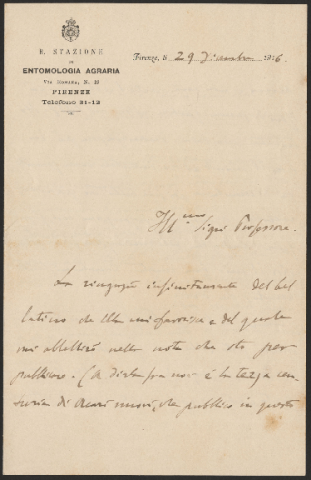 R. STAZIONE
DI
ENTOMOLOGIA AGRARIA
Via Romana, N.
FIRENZE
Telefono 21-12
Firenze, li 29 Dicembre 1916.
Ill.mo Sigr Professore.
La ringrazio infinitamente del bel
latino da Ella e del quale
mi nella nota che sto per
pubblicare. ( non è la terza cen-
turia di Acari nuovi, che pubblico in questo